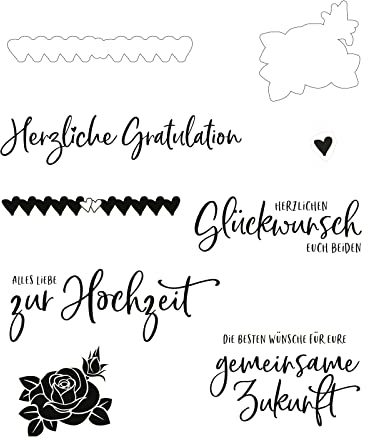 Herzliche Gratulation
HERZLICHEN
Glückwunsch
EUCH BEIDEN
ALLES LIEBE
zur Hochzeit
DIE BESTEN WÜNSCHE FÜR EURE
gemeinsame
Zukunft